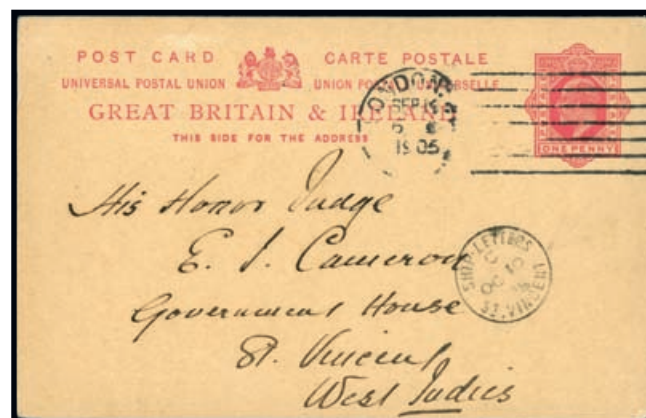 POST CARD CARTE POSTALE
UNIVERSAL POSTAL UNION UNION POSTALE UNIVERSELLE
GREAT BRITAIN & IRELAND
THIS SIDE FOR THE ADDRESS
ONE PENNY
LONDON
SEP
1905
His Honor Judge
E. J. Cameron
Government House
St. Vincent
West Indies
SHIP-LETTERS
C
OC 10
ST. VINCENT